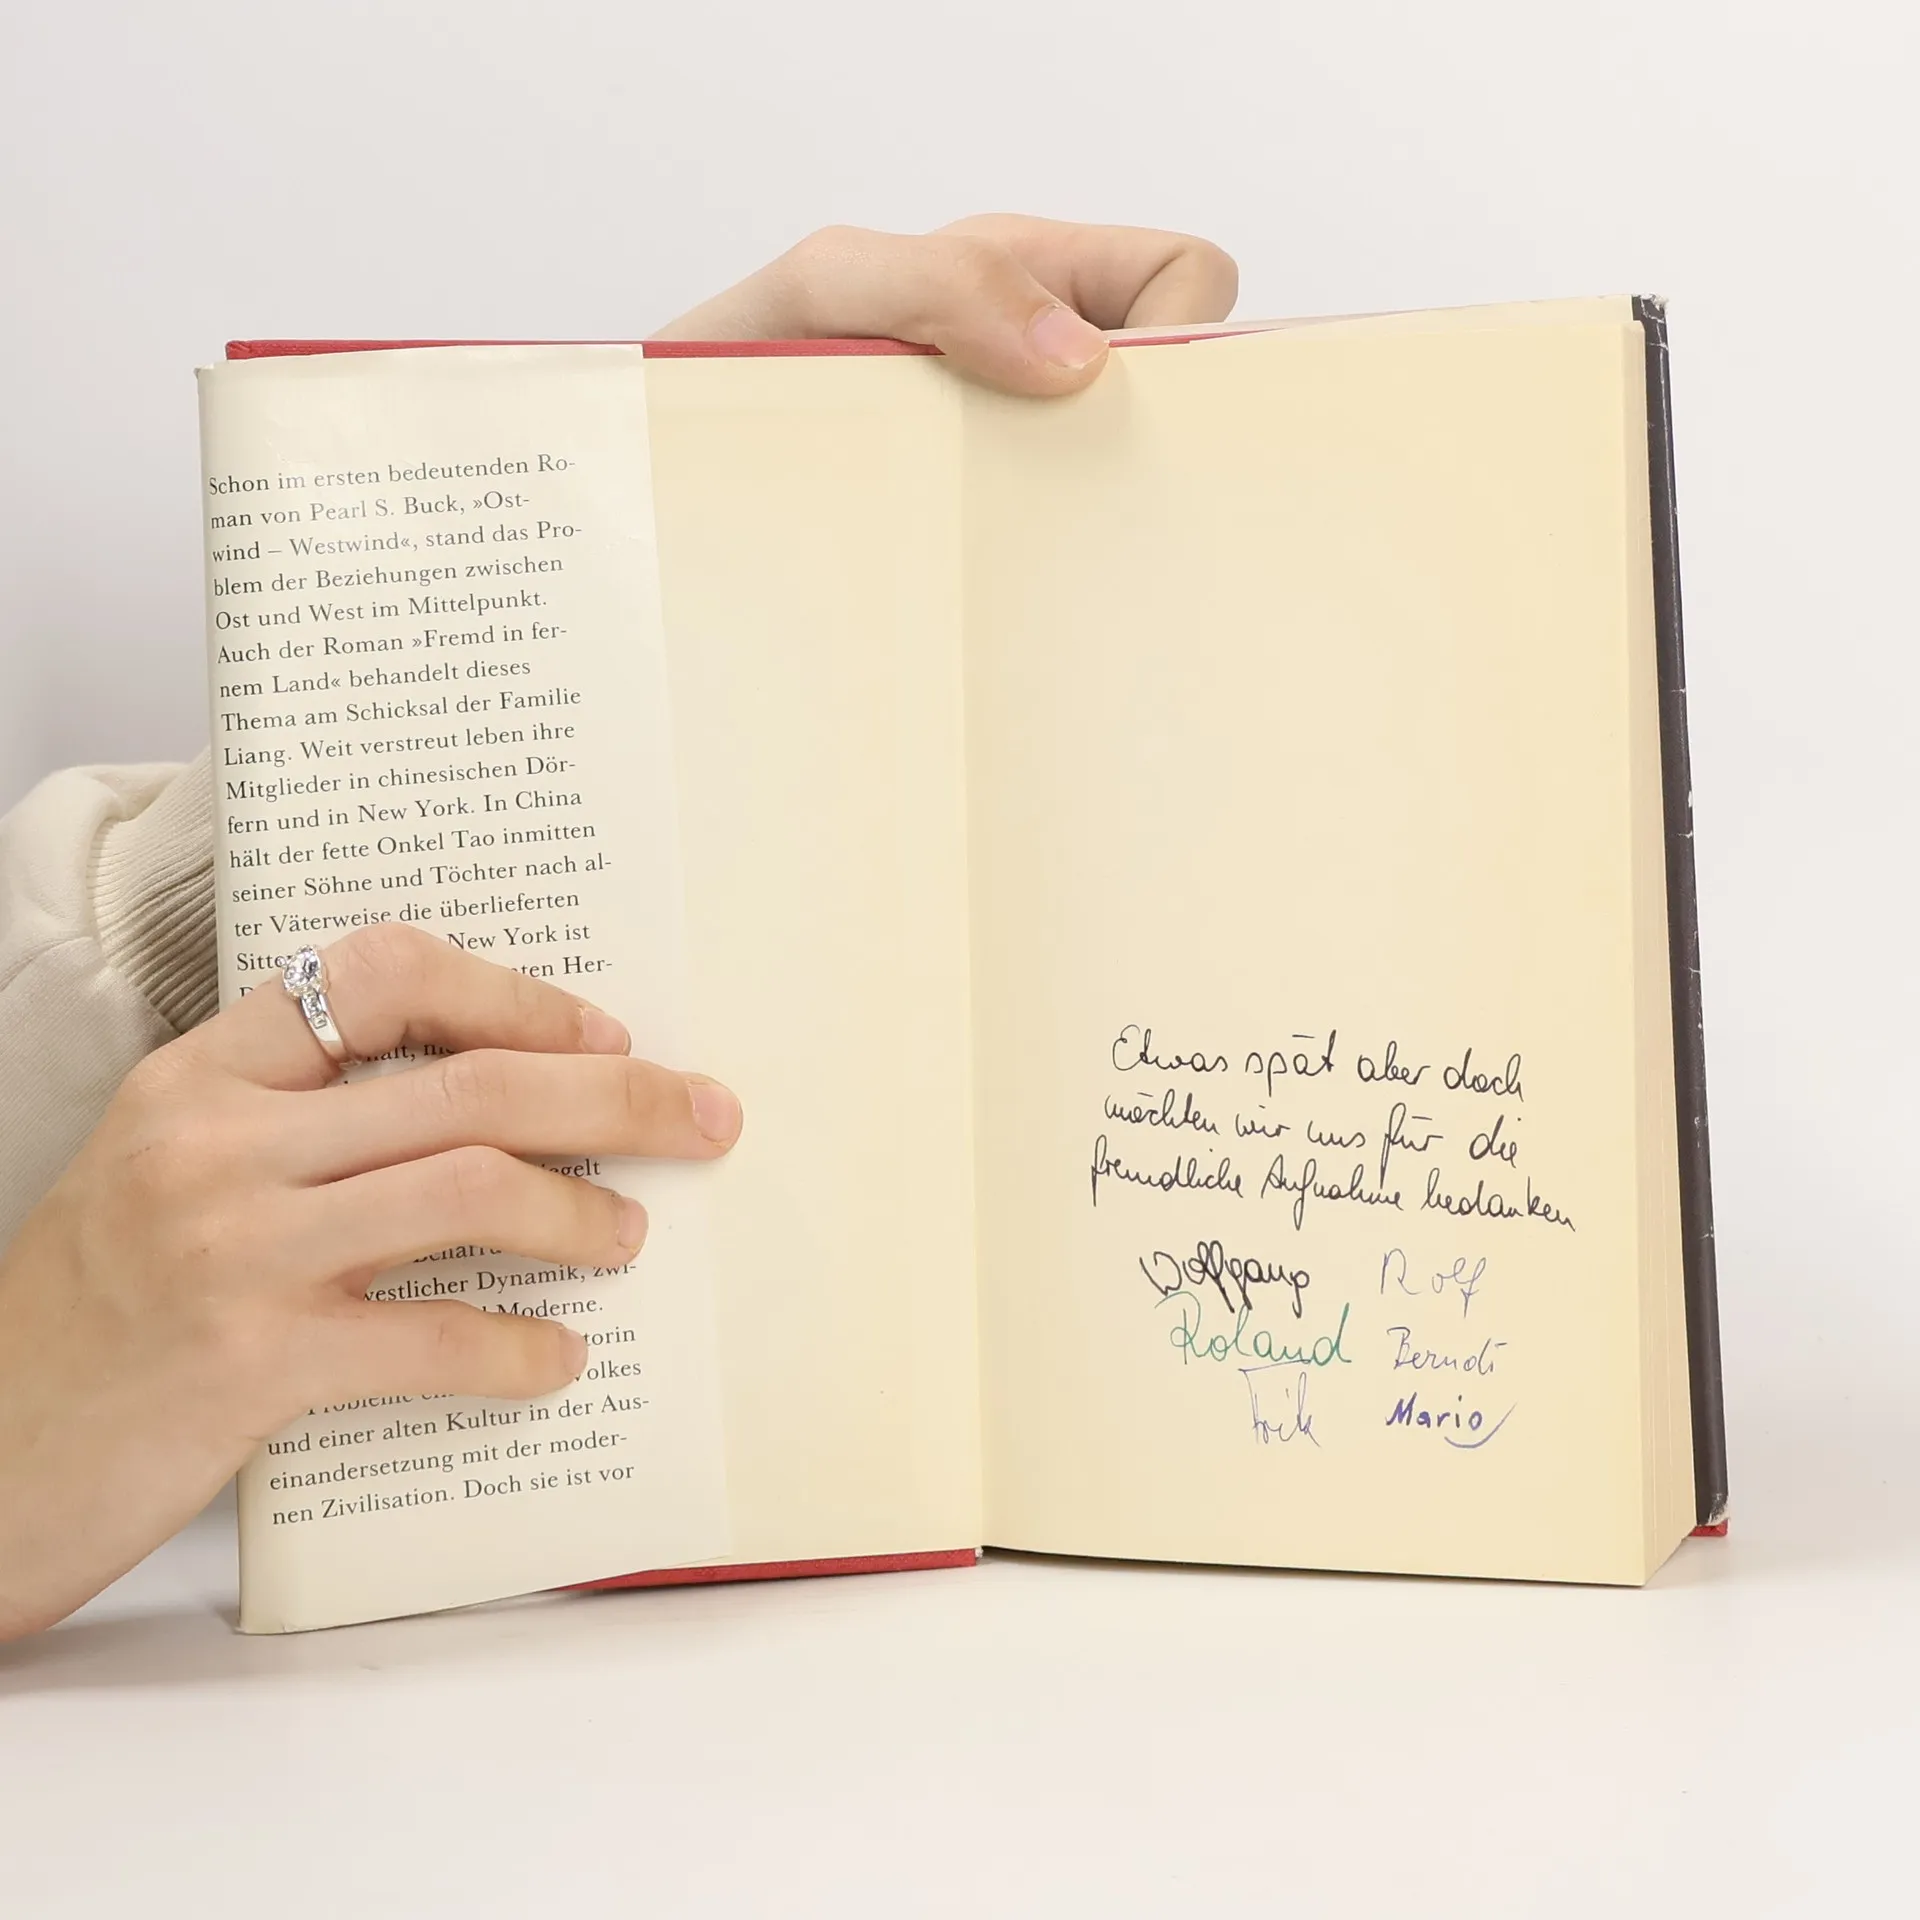 Schon im ersten bedeutenden Ro-
man von Pearl S. Buck, »Ost-
wind – Westwind«, stand das Pro-
blem der Beziehungen zwischen
Ost und West im Mittelpunkt.
Auch der Roman »Fremd in fer-
nem Land« behandelt dieses
Thema am Schicksal der Familie
Liang. Weit verstreut leben ihre
Mitglieder in chinesischen Dör-
fern und in New York. In China
hält der fette Onkel Tao inmitten
seiner Söhne und Töchter nach al-
ter Väterweise die überlieferten
New York ist
Her-
westlicher Dynamik, zwi-
Moderne.
und einer alten Kultur in der Aus-
einandersetzung mit der moder-
nen Zivilisation. Doch sie ist vor
Etwas spät aber doch
möchten wir uns für die
freundliche Aufnahme bedanken
Wolfgang Rolf
Roland Berndt
Mario